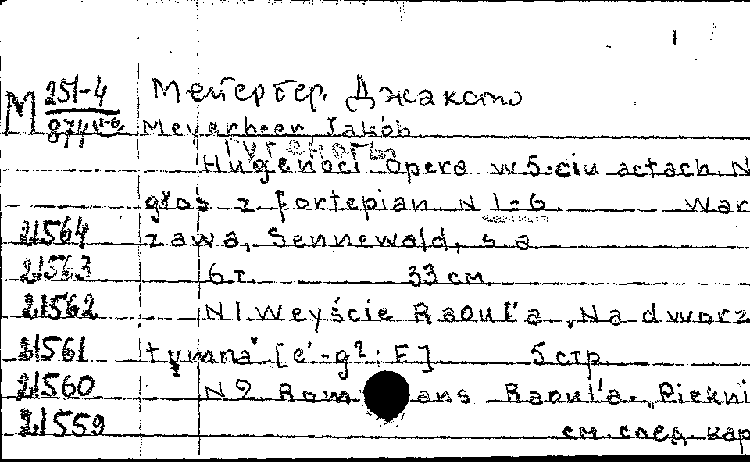 1
М 251-4 Мейербер, Джакомо
874 Meyerbeer Jakób
Hugenoci Opera w 5-ciu actach N
głos z fortepian N 1-6 War
21564 zawa, Sennewald, s a
21563 6 т. 33 см.
21562 N1. Weyście Raoul'a „Na dworz
21561 tymna" [e'-g²: F] 5 стр.
21560 N 2 Rom ans Raoul'a. „Piekni
21559 см. след. кар